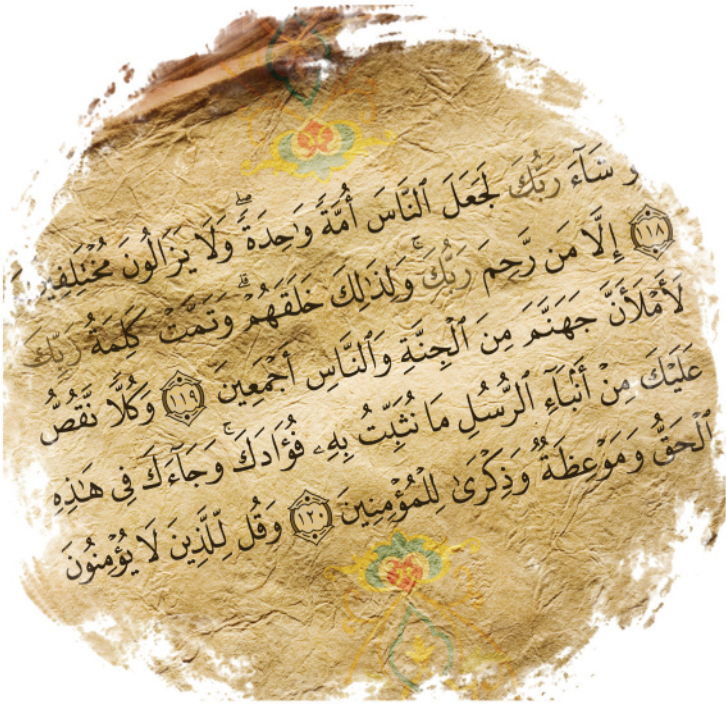 شَآءَ رَبُّكَ لَجَعَلَ ٱلنَّاسَ أُمَّةً وَٰحِدَةً ۖ وَلَا يَزَالُونَ مُخْتَلِفِينَ
﴿١١٨﴾ إِلَّا مَن رَّحِمَ رَبُّكَ ۚ وَلِذَٰلِكَ خَلَقَهُمْ ۗ وَتَمَّتْ كَلِمَةُ رَبِّكَ
لَأَمْلَأَنَّ جَهَنَّمَ مِنَ ٱلْجِنَّةِ وَٱلنَّاسِ أَجْمَعِينَ ﴿١١٩﴾ وَكُلًّا نَّقُصُّ
عَلَيْكَ مِنْ أَنۢبَآءِ ٱلرُّسُلِ مَا نُثَبِّتُ بِهِۦ فُؤَادَكَ ۚ وَجَآءَكَ فِى هَٰذِهِ
ٱلْحَقُّ وَمَوْعِظَةٌ وَذِكْرَىٰ لِلْمُؤْمِنِينَ ﴿١٢٠﴾ وَقُل لِّلَّذِينَ لَا يُؤْمِنُونَ